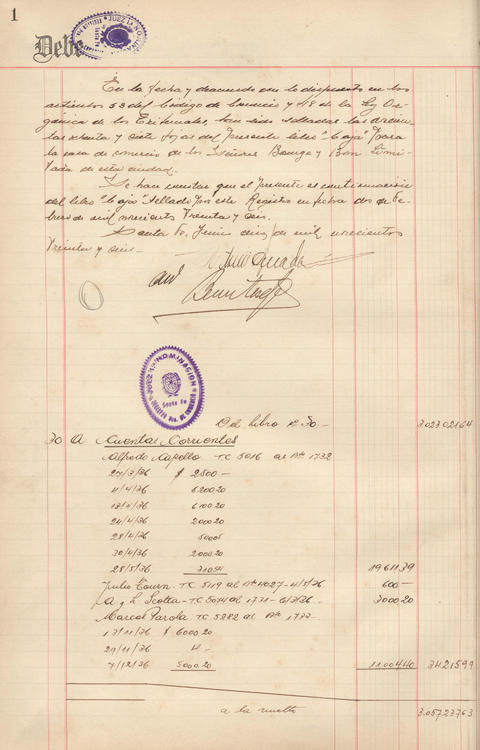 1
Debe
JUEZ 1a NOMINA
En la fecha y deacuerdo con lo dispuesto en los
artículos 53 del Código de Comercio y 48 de la Ley Or-
gánica de los Tribunales, han sido selladas las
y siete fojas del presente libro "Caja" para
la casa de comercio de los Señores Bauge y Limi-
tada de esta ciudad.
Se hace constar que el presente es continuación
del libro "Caja" sellado por este Registro en fecha dos de Fe-
brero de mil novecientos treinta y seis.
Santa Fe, Junio diez de mil novecientos
treinta y seis.
JUEZ 1a NOMINACION
Santa Fe
DE COMERCIO
Del libro No 30 3.023.021 64
30 A Cuentas Corrientes
Alfredo Capello TC 5016 al No 1732
27/3/36 $ 2500 —
11/4/36 6200 20
6100 20
24/4/36 2000 20
28/4/36
30/4/36 2000 20
28/5/36 19611 39
Julio TC 5119 al No 4027 - 4/5/36 600 —
A y L Scotta - TC 5074 al 1731 - 3000 20
Marcos Parola TC 5282 al No 1733
13/11/36 $ 6000 20
29/11/36
7/12/36 5000 20 11004 40 34215 99
a la vuelta 3.057.237 63